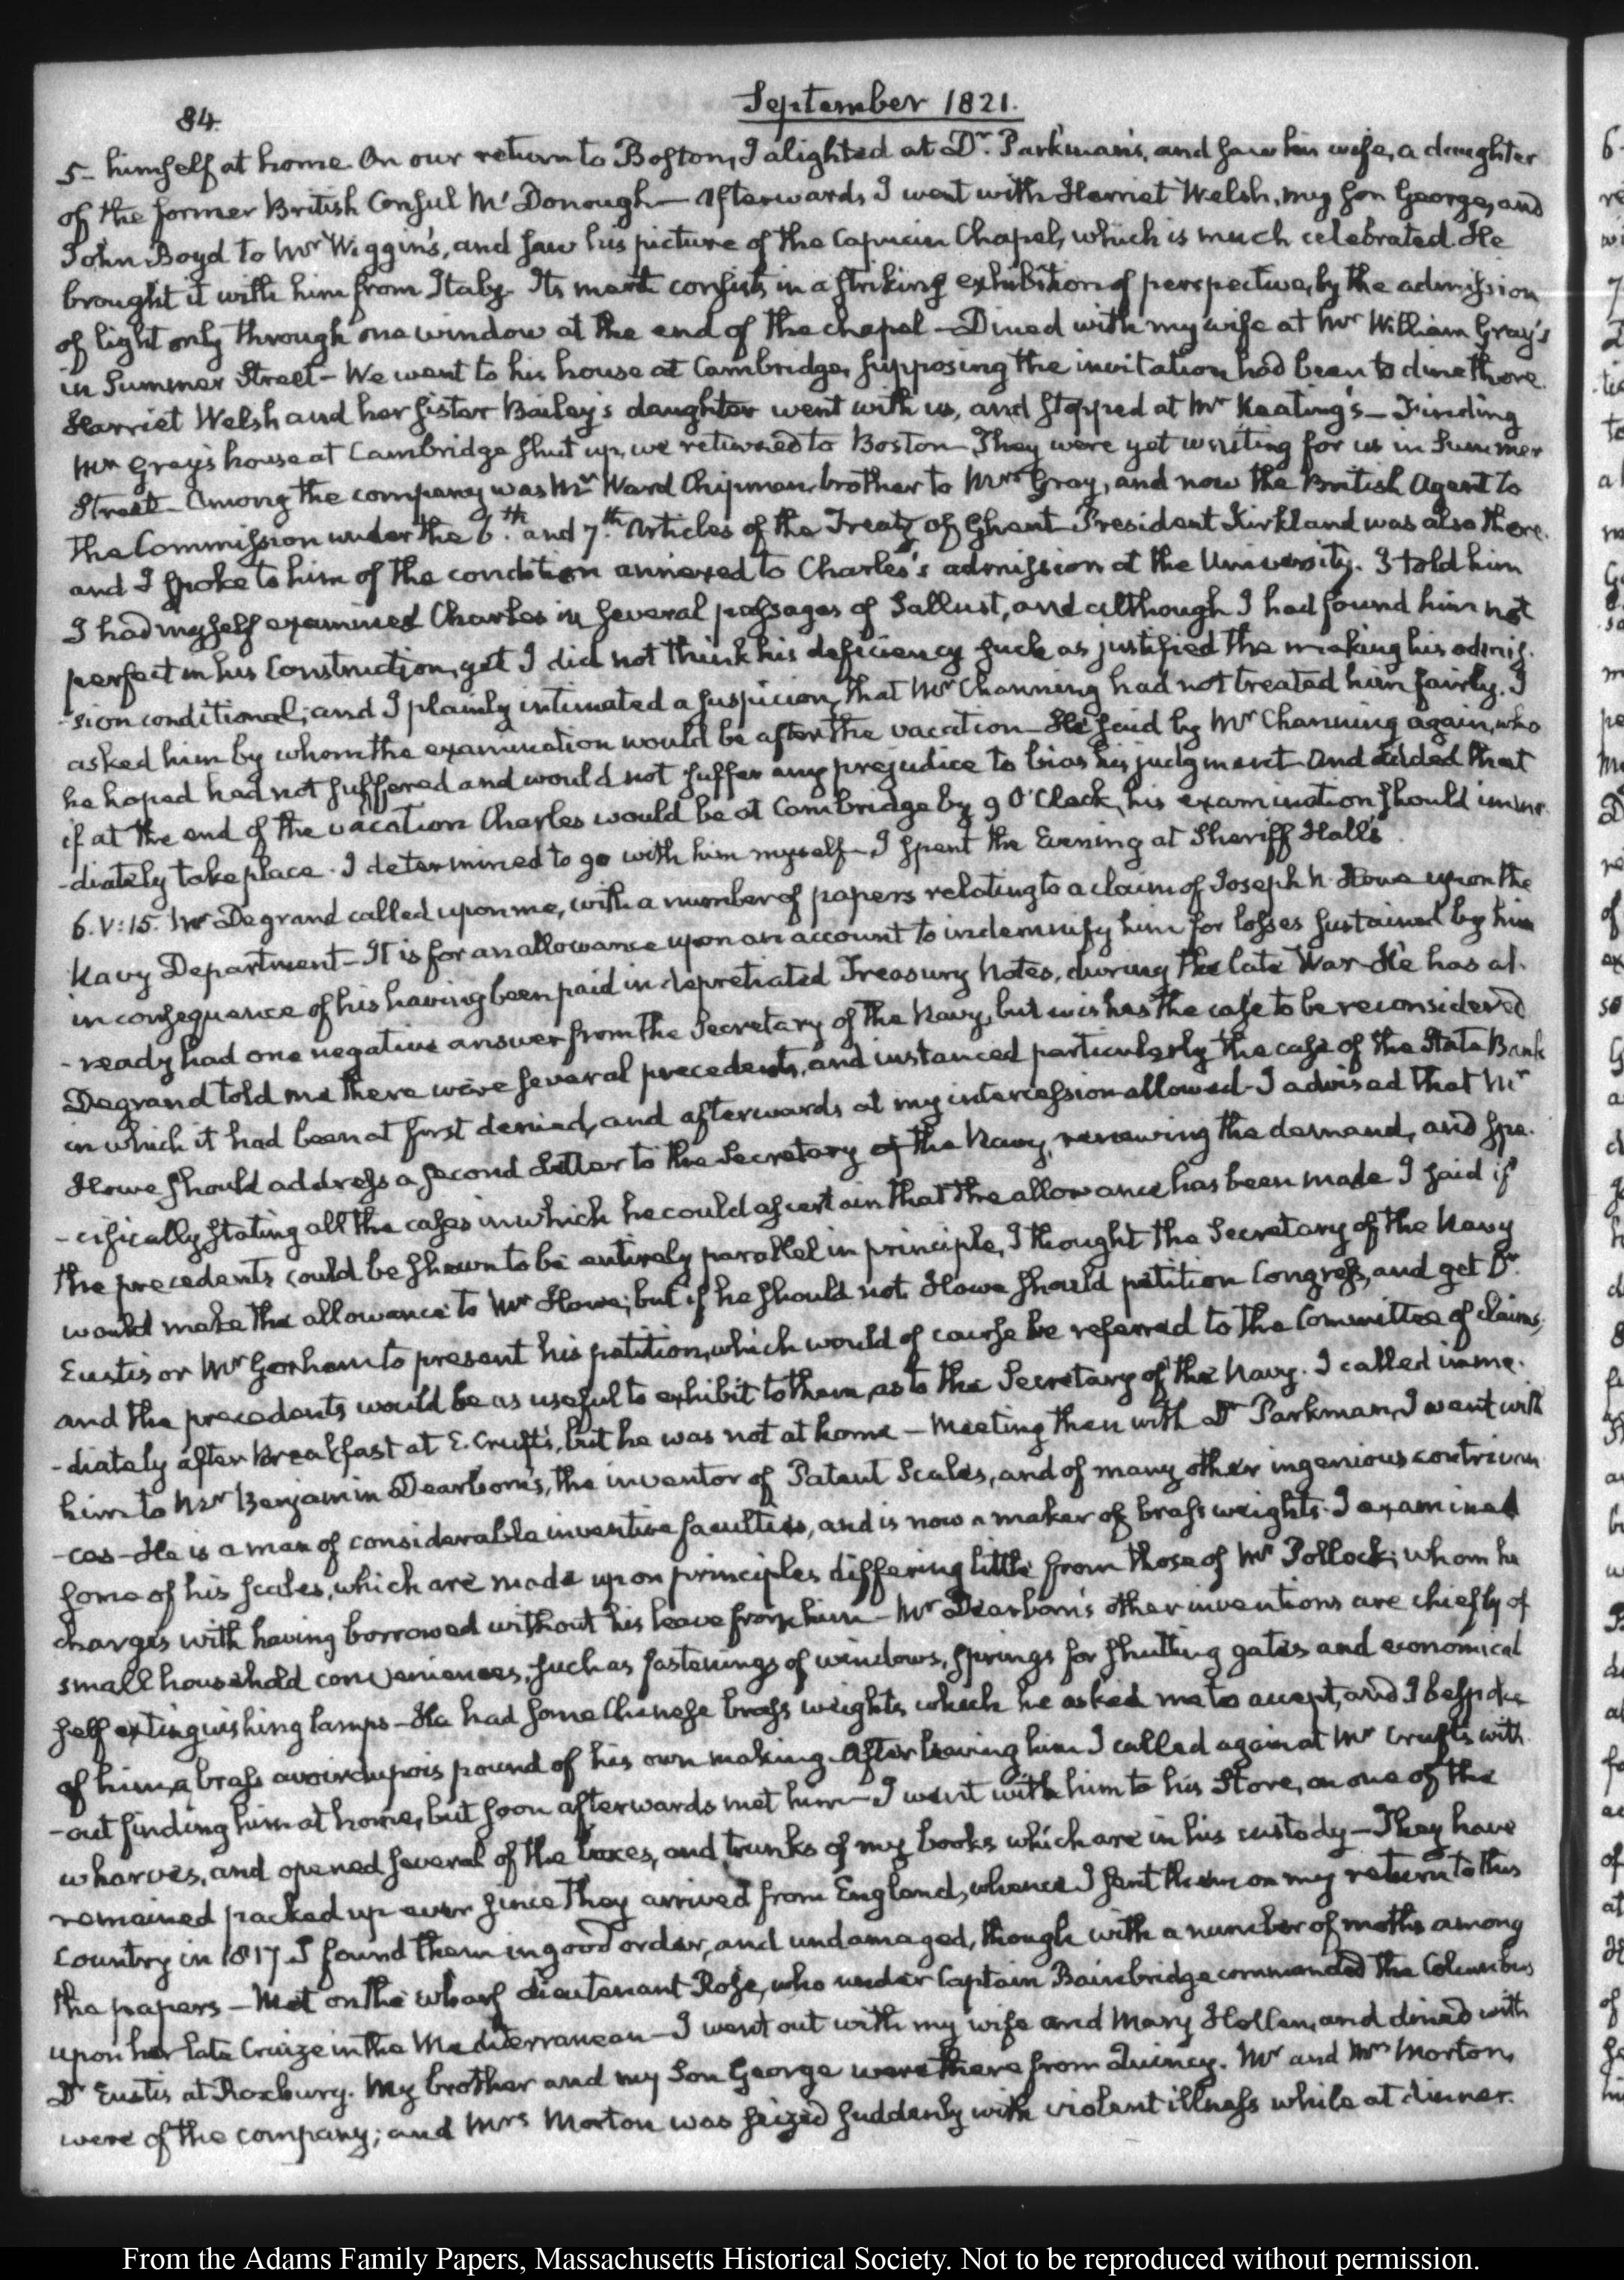 84.
September 1821.
5- himself at home. On our return to Boston, I alighted at Dr. Parkman's, and saw his wife, a daughter
of the former British Consul Mc Donough— Afterwards I went with Harriet Welsh, my son George, and
John Boyd to Mr Wiggin's, and saw his picture of the Capucin Chapel, which is much celebrated. He
brought it with him from Italy. Its merit consists in a striking exhibition of perspective, by the admission
of light only through one window at the end of the chapel— Dined with my wife at Mr William Gray's
in Summer Street— We went to his house at Cambridge, supposing the invitation had been to dine there.
Harriet Welsh and her sister Bailey's daughter went with us, and stopped at Mr Keating's— Finding
Mr Gray's house at Cambridge shut up, we returned to Boston— They were yet waiting for us in Summer
Street— Among the company was Mr Ward Chipman, brother to Mrs Gray, and now the British Agent to
the Commission under the 6.th and 7.th Articles of the Treaty of Ghent— President Kirkland was also there.
and I spoke to him of the condition annexed to Charles's admission at the University. I told him
I had myself examined Charles in several passages of Sallust, and although I had found him not
perfect in his Construction, yet I did not think his deficiency such as justified the making his admis-
-sion conditional; and I plainly intimated a suspicion, that Mr Channing had not treated him fairly. I
asked him by whom the examination would be after the vacation— He said by Mr Channing again, who
he hoped had not suffered and would not suffer any prejudice to bias his judgment— And added that
if at the end of the vacation Charles would be at Cambridge by 9 O'Clock, his examination should imme-
-diately take place. I determined to go with him myself— I spent the Evening at Sheriff Hall's.
6. V:15. Mr Degrand called upon me, with a number of papers relating to a claim of Joseph N. Howe upon the
Navy Department— It is for an allowance upon an account to indemnify him for losses sustained by him
in consequence of his having been paid in depretiated Treasury Notes, during the late War— He has al-
-ready had one negative answer from the Secretary of the Navy, but wishes the case to be reconsidered
Degrand told me there were several precedents, and instanced particularly the case of the State Bank
in which it had been at first denied, and afterwards at my intercession allowed— I advised that Mr
Howe should address a second Letter to the Secretary of the Navy, renewing the demand, and spe-
-cifically stating all the cases in which he could ascertain that the allowance has been made I said if
the precedents could be shewn to be entirely parallel in principle, I thought the Secretary of the Navy
would make the allowance to Mr Howe; but if he should not Howe should petition Congress, and get Dr.
Eustis or Mr Gorham to present his petition, which would of course be referred to the Committee of Claims,
and the precedents would be as useful to exhibit to them, as to the Secretary of the Navy. I called imme-
-diately after breakfast at E. Cruft's, but he was not at home— Meeting then with Dr Parkman, I went with
him to Mr Benjamin Dearborn's, the inventor of Patent Scales, and of many other ingenious contrivan
-ces— He is a man of considerable inventive faculties, and is now a maker of brass weights. I examined
some of his scales, which are made upon principles differing little from those of Mr Pollock; whom he
charges with having borrowed without his leave from him— Mr Dearborn's other inventions are chiefly of
small household conveniences, such as fastenings of windows, springs for shutting gates and economical
self extinguishing lamps— He had some Chinese brass weights which he asked me to accept, and I bespoke
of him, a brass avoirdupois pound of his own making. After leaving him I called again at Mr Cruft's with
-out finding him at home, but soon afterwards met him— I went with him to his Store, on one of the
wharves, and opened several of the boxes, and trunks of my books which are in his custody— They have
remained packed up ever since they arrived from England, whence I sent them on my return to this
Country in 1817. I found them in good order, and undamaged, though with a number of moths among
the papers— Met on the wharf Lieutenant Rose, who under Captain Bainbridge commanded the Columbus
upon her late Cruize in the Mediterranean— I went out with my wife and Mary Hellen, and dined with
Dr Eustis at Roxbury. My brother and my Son George were there from Quincy. Mr and Mrs Morton,
were of the company; and Mrs Morton was seized suddenly with violent illness while at dinner.
From the Adams Family Papers, Massachusetts Historical Society. Not to be reproduced without permission.